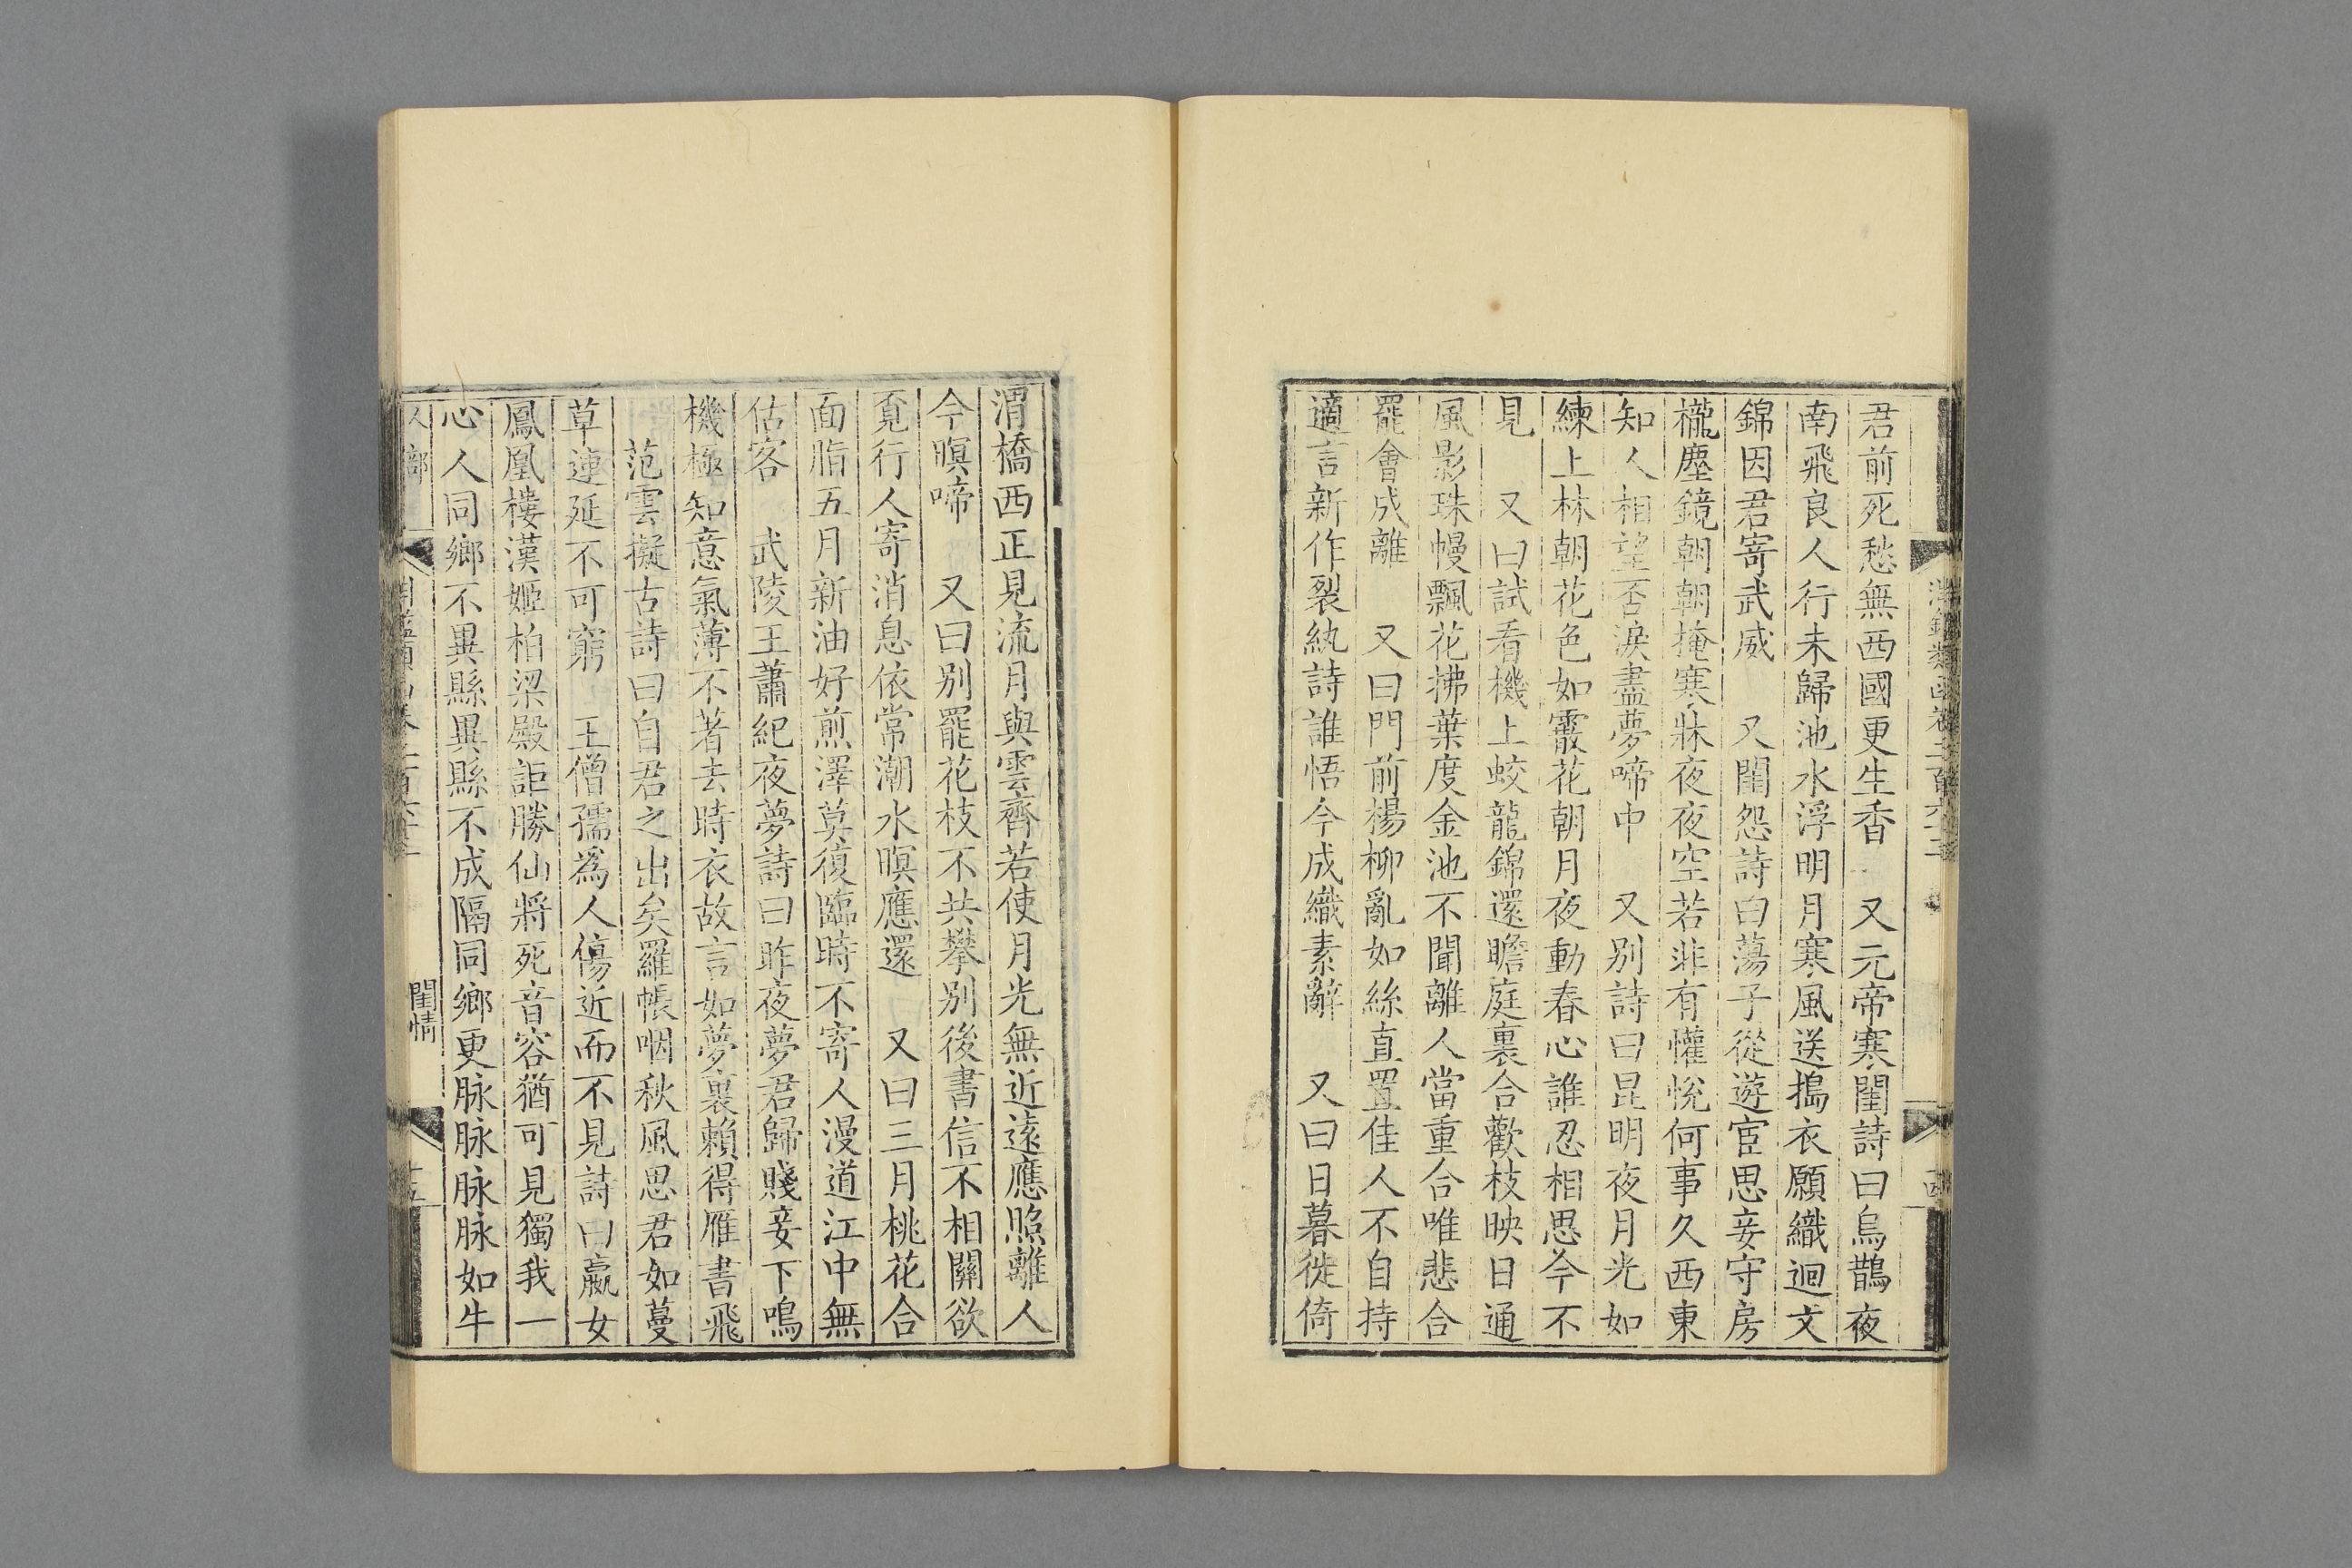 君前死愁無西國更生香　又元帝寒閨詩曰烏鵲夜
南飛良人行未歸池水浮明月寒風送搗衣願織迴文
錦因君寄武威　又閨怨詩曰蕩子從遊宦思妾守房
櫳塵鏡朝朝掩寒牀夜夜空若非有懽悅何事久西東
知人相望否淚盡夢啼中　又別詩曰昆明夜月光如
練上林朝花色如霰花朝月夜動春心誰忍相思今不
見　又曰試看機上蛟龍錦還瞻庭裏合歡枝映日通
風影珠幔飄花拂葉度金池不聞離人當重合唯悲合
罷會成離　又曰門前楊柳亂如絲直置佳人不自持
適言新作裂紈詩誰悟今成織素辭　又曰日暮徙倚
渭橋西正見流月與雲齊若使月光無近遠應照離人
今暝啼　又曰別罷花枝不共攀別後書信不相關欲
覓行人寄消息依常潮水暝應還　又曰三月桃花合
面脂五月新油好煎澤莫復臨時不寄人漫道江中無
估客　武陵王蕭紀夜夢詩曰昨夜夢君歸賤妾下鳴
機極知意氣薄不著去時衣故言如夢裏賴得雁書飛
范雲擬古詩曰自君之出矣羅帳咽秋風思君如蔓
草連延不可窮　王僧孺爲人傷近而不見詩曰嬴女
鳳凰樓漢姬柏梁殿詎勝仙將死音容猶可見獨我一
心人同鄉不異縣異縣不成隔同鄉更脉脉脉脉如牛
人部
閨情